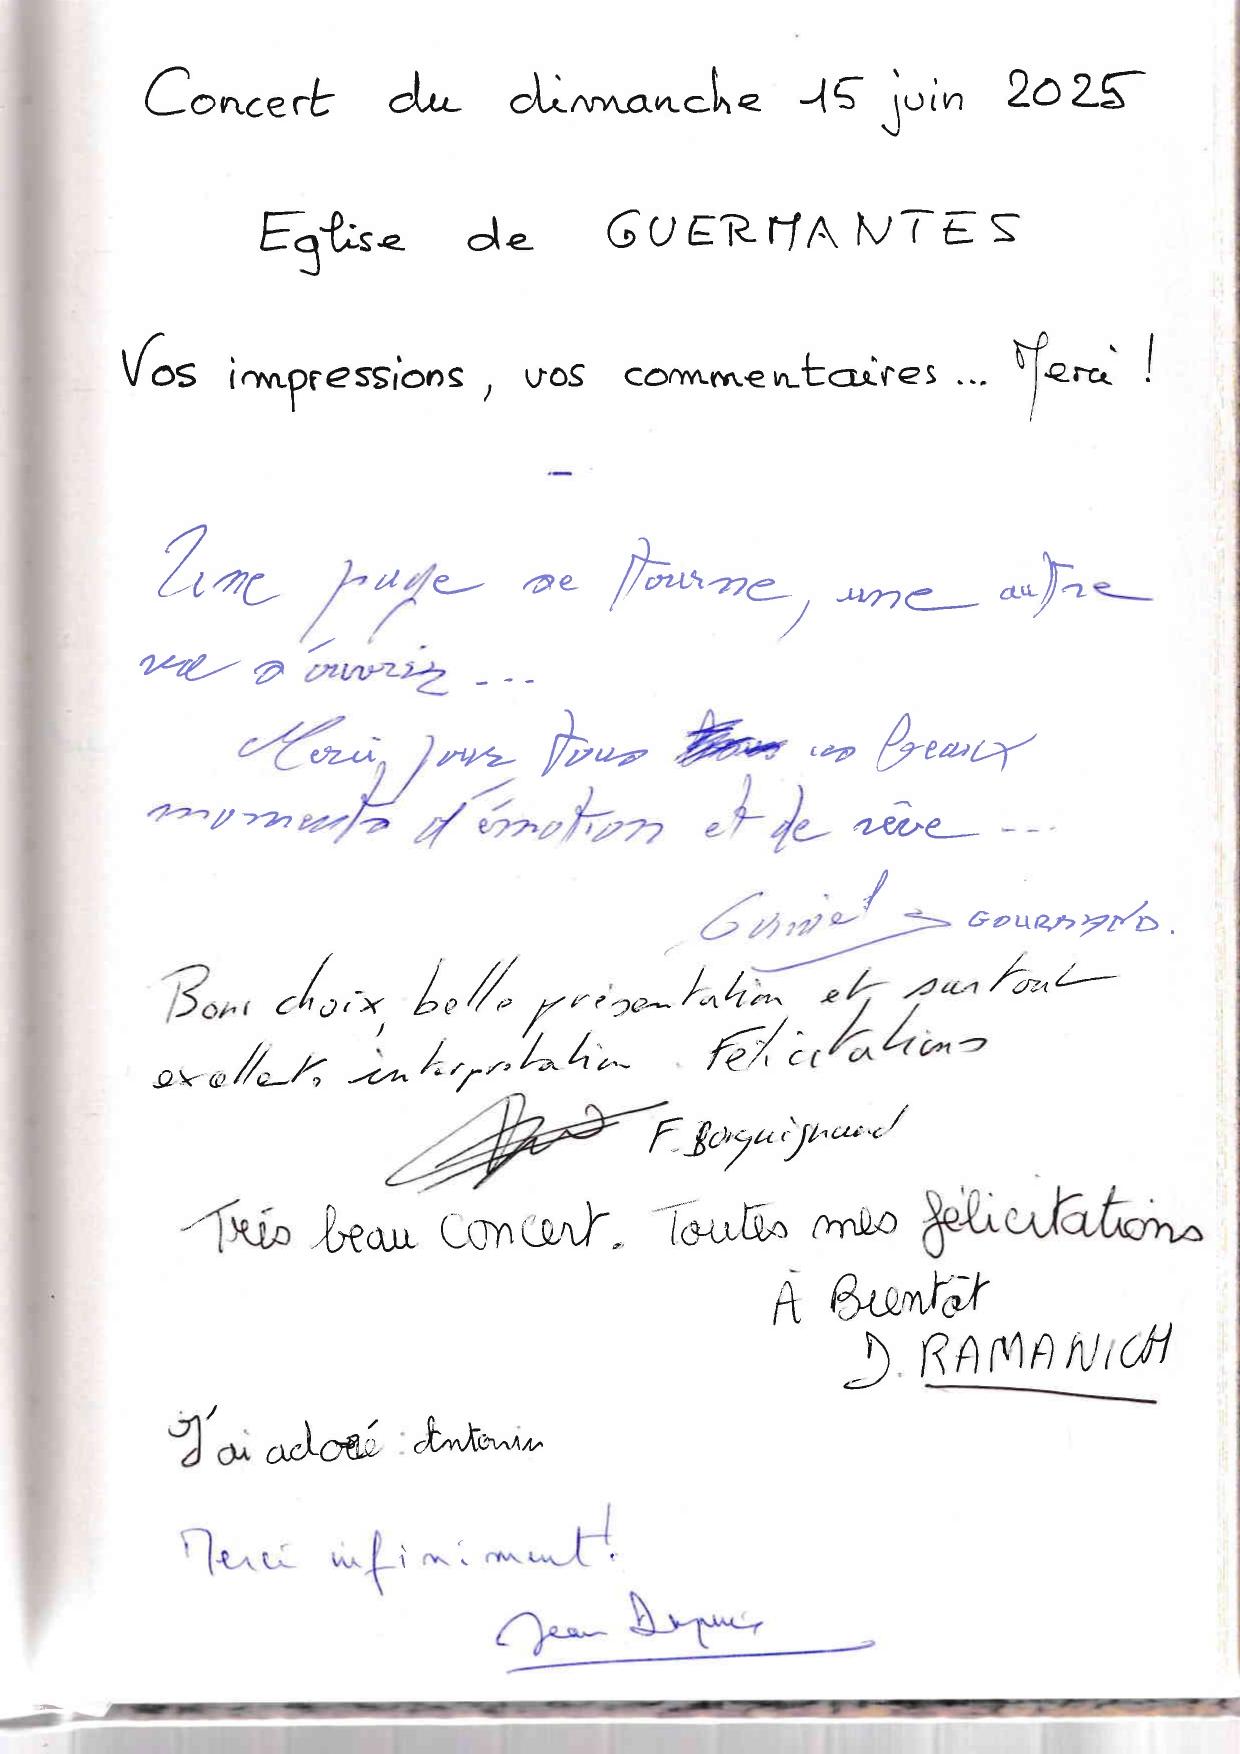 Concert du dimanche 15 juin 2025
Eglise de GUERMANTES
Vos impressions, vos commentaires... Merci !
Une page se tourne, une autre
va s'ouvrir ...
Merci, pour tous ces beaux
moments d'émotion et de rêve ...
GOURMAND.
Bons choix, belle présentation et surtout
excellente interprétation. Félicitations
F. Borguignaud
Très beau concert. Toutes mes félicitations
À Bientôt
D. RAMANICH
J'ai adoré : Antonin
Merci infiniment !
Jean Dupuis